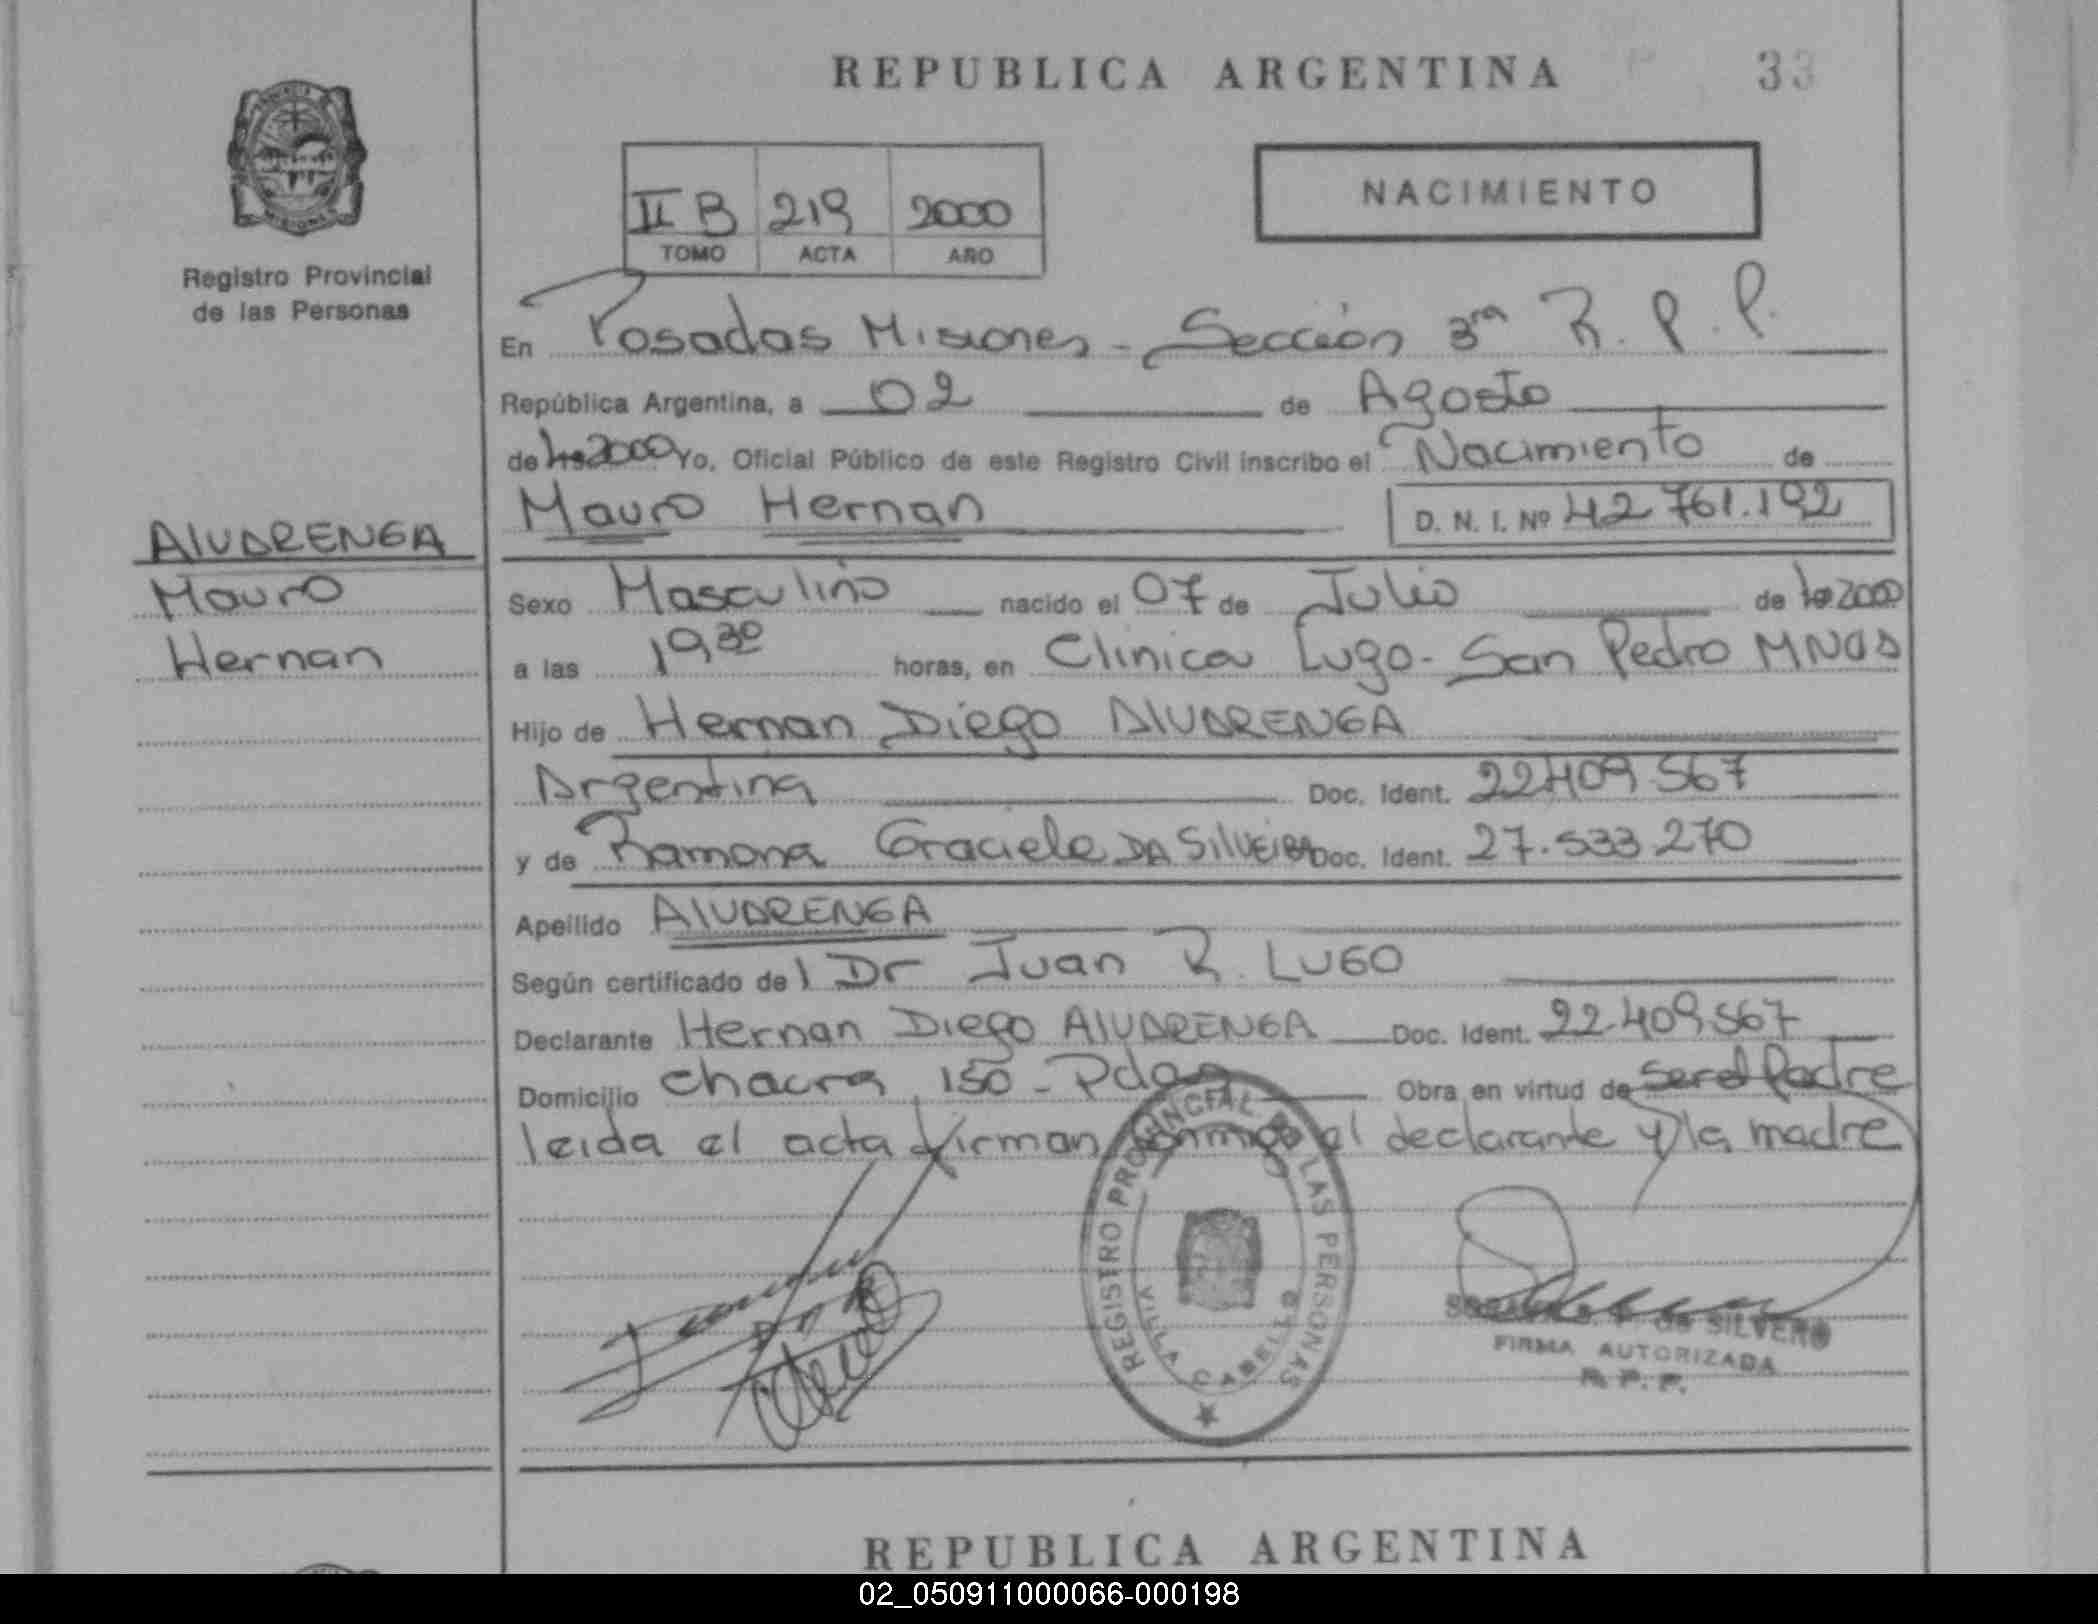 REPUBLICA ARGENTINA 33
Registro Provincial
de las Personas
II B 219 2000
TOMO ACTA AÑO
NACIMIENTO
En Posadas Misiones - Sección 3ra R. P. P.
República Argentina, a 02 de Agosto
de 2000 Yo, Oficial Público de este Registro Civil inscribo el Nacimiento de
Mauro Hernan D. N. I. Nº 42 761.192
AlVARENGA
Mauro
Hernan
Sexo Masculino nacido el 07 de Julio de 2000
a las 19,30 horas, en Clinica Lugo - San Pedro MNES
Hijo de Hernan Diego AlVARENGA
Argentina Doc. Ident. 22409.567
y de Ramona Graciela DA SilVEIRA Doc. Ident. 27.533.270
Apellido AlVARENGA
Según certificado del Dr Juan R. LUGO
Declarante Hernan Diego AlVARENGA Doc. Ident. 22.409.567
Domicilio chacra 150 - Pdas Obra en virtud de ser el Padre
leida el acta firman conmigo el declarante y la madre
REGISTRO PROVINCIAL DE LAS PERSONAS
VILLA CABELLO
de SILVERO
FIRMA AUTORIZADA
R. P. P.
REPUBLICA ARGENTINA
02_050911000066-000198